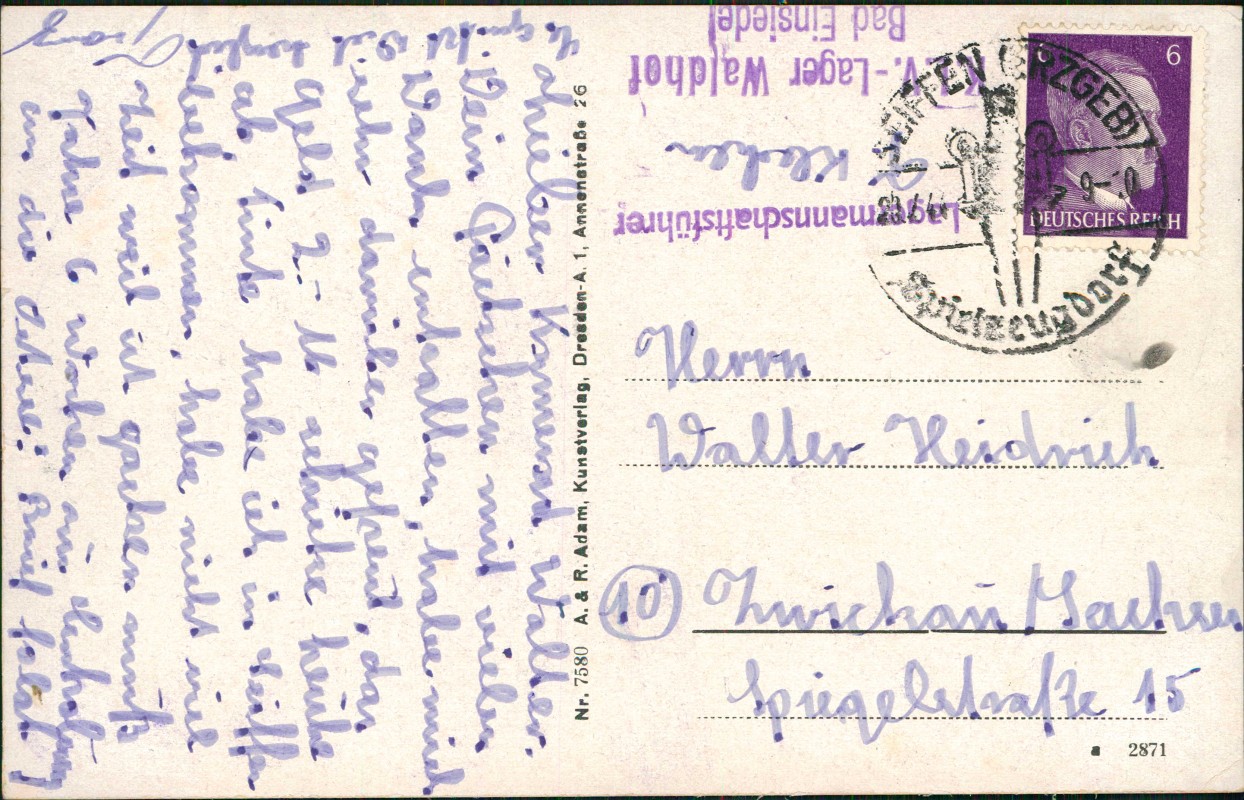 Lieber Kamerad Walter.
Dein Päckchen mit vielen
Dank erhalten, habe mich
sehr darüber gefreut, das
Geld 2,- M schicke heute
ab. Tinte habe ich in Seiffen
bekommen, habe nicht viel
Zeit weil ich packen muß
fahre 6 Wochen zur
an die Brief folgt.
Es grüßt Dich herzlich
Franz
Nr. 7580 A. & R. Adam, Kunstverlag, Dresden-A. 1, Annenstraße 26
Lagermannschaftsführer
K.L.V.-Lager Waldhof
Bad Einsiedel
SEIFFEN (ERZGEB)
Spielzeugdorf
6
DEUTSCHES REICH
Herrn
Walter Heidrich
(10) Zwickau/Sachsen
Spiegelstraße 15
a 2871